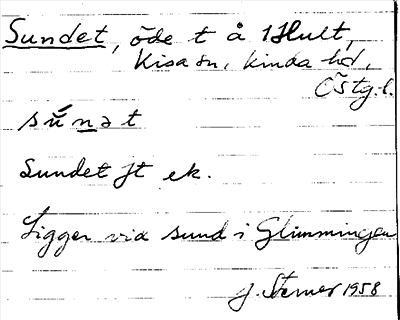 Sundet, öde t å 1 Hult,
Kisa sn, Kinda hd,
Östg.l.
súnət
Sundet jt ek.
Ligger vid sund i Glimmingen
J. Sterner 1958